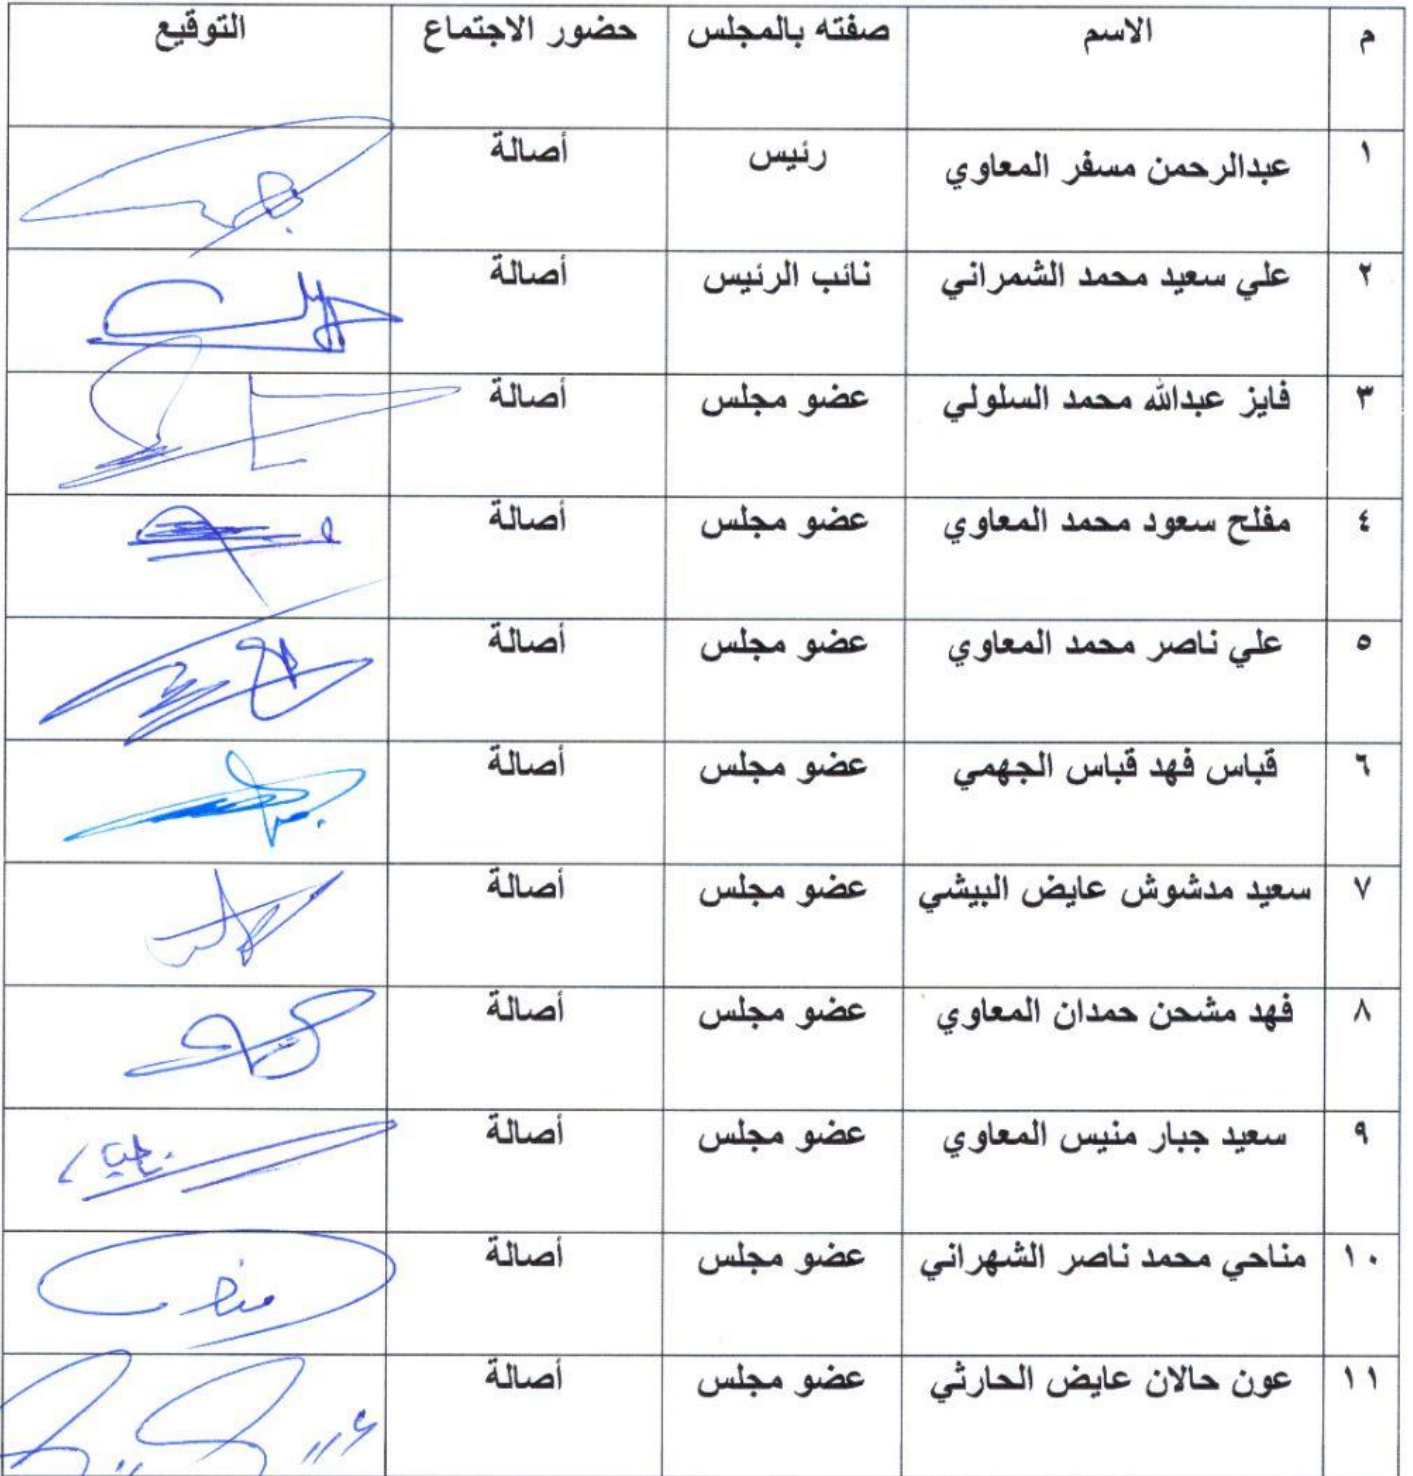 م الاسم صفته بالمجلس حضور الاجتماع التوقيع
١ عبدالرحمن مسفر المعاوي رئيس أصالة
٢ علي سعيد محمد الشمراني نائب الرئيس أصالة
٣ فايز عبدالله محمد السلولي عضو مجلس أصالة
٤ مفلح سعود محمد المعاوي عضو مجلس أصالة
٥ علي ناصر محمد المعاوي عضو مجلس أصالة
٦ قباس فهد قباس الجهمي عضو مجلس أصالة
٧ سعيد مدشوش عايض البيشي عضو مجلس أصالة
٨ فهد مشحن حمدان المعاوي عضو مجلس أصالة
٩ سعيد جبار منيس المعاوي عضو مجلس أصالة
١٠ مناحي محمد ناصر الشهراني عضو مجلس أصالة
١١ عون حالان عايض الحارثي عضو مجلس أصالة